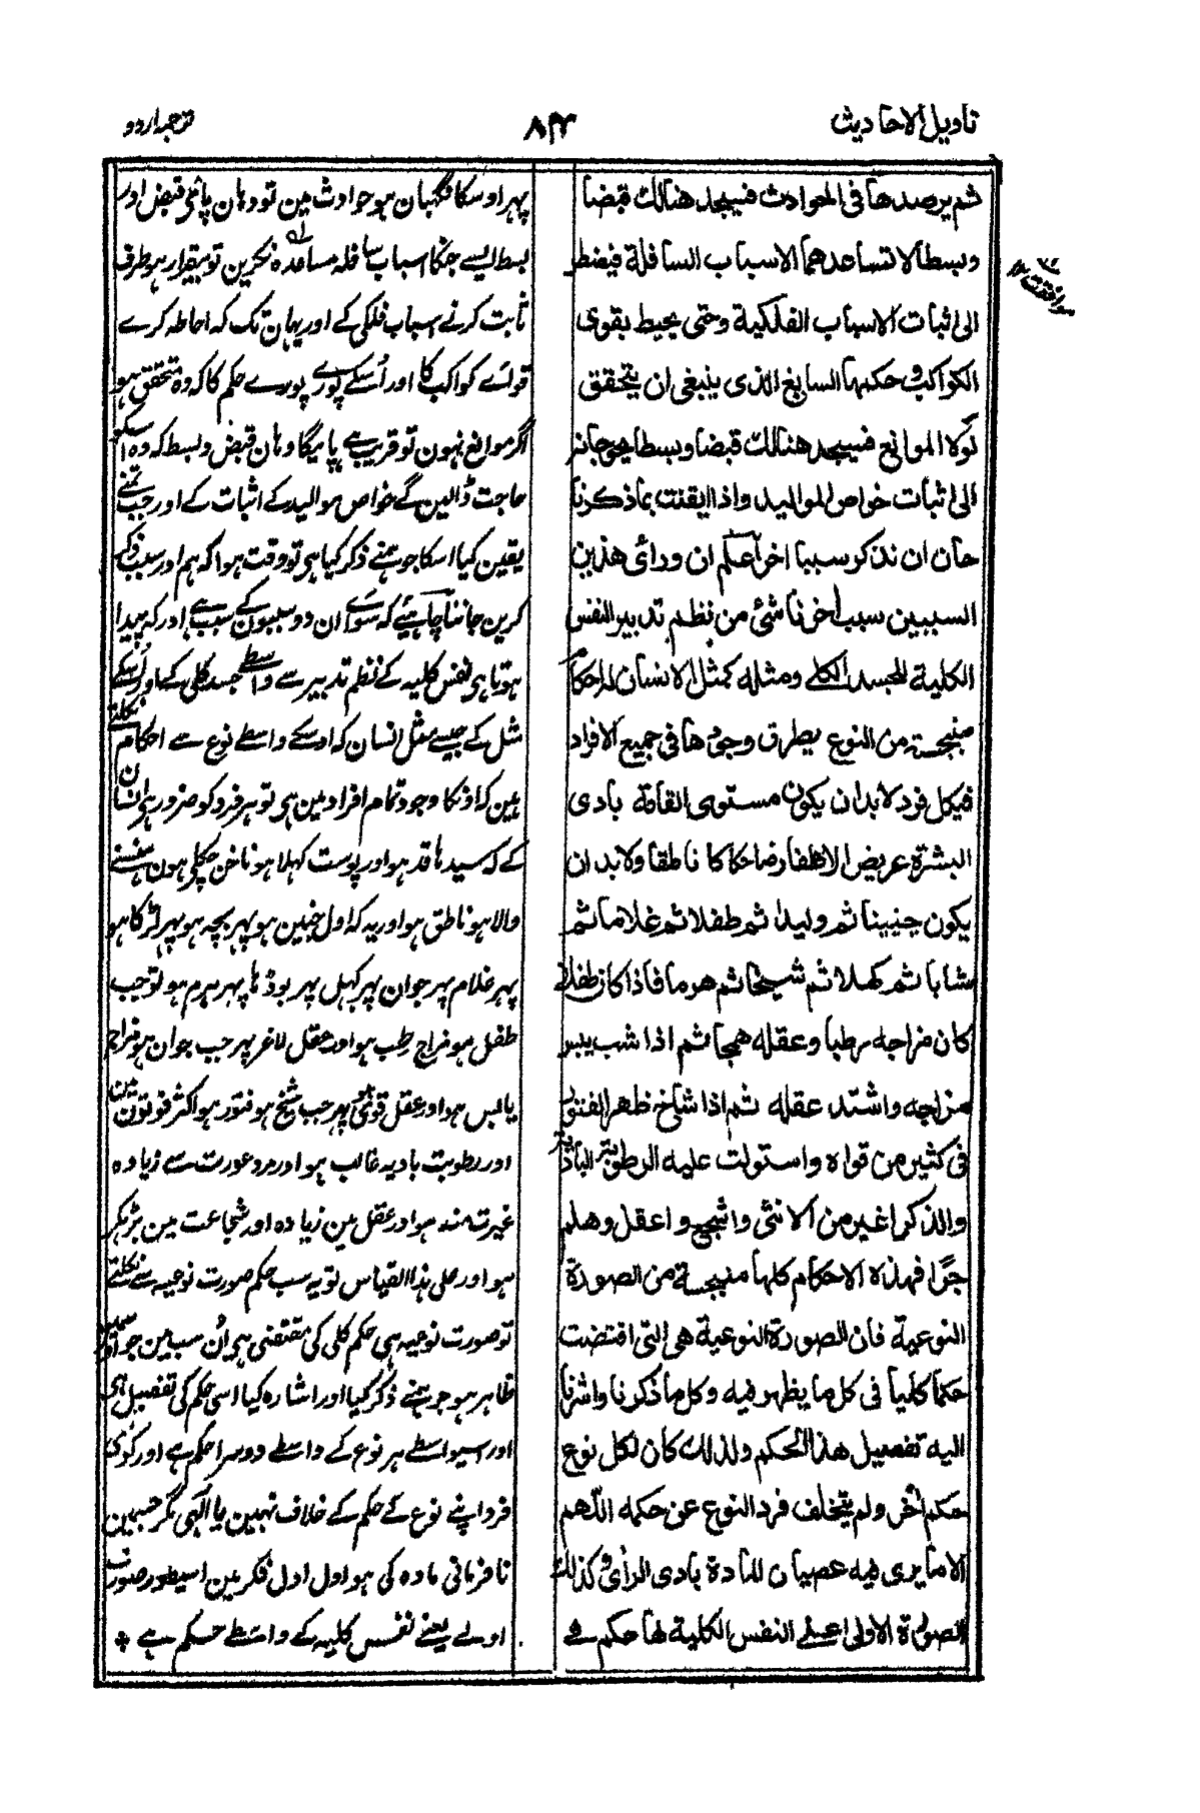 تاویل الاحادیث
۸۳
ترجمہ اردو
ثم يرصدها فی الحوادث فسيجد هنالك قبضا
وبسطا لا تساعدهما الاسباب السافلة فيضطر
الى اثبات الاسباب الفلكية وحتى يحيط بقوى
الكواكب وحكمها السابغ الذی ينبغی ان يتحقق
لولا الموانع فسيجد هنالك قبضا وبسطا
الى اثبات خواص المواليد واذا ايقنت بما ذكرنا
حان ان نذكر سببا اخر اعلم ان ورائ هذين
السببين سبب اخر ناشئ من نظم تدبير النفس
الكلية للجسد الكلی ومثله كمثل الانسان له احكام
منبجسة من النوع بطرق وجودها فی جميع الافراد
فكل فرد لابد ان يكون مستوی القامة بادی
البشرة عريض الاظفار ضاحكا ناطقا ولابد ان
يكون جنينا ثم وليدا ثم طفلا ثم غلاما ثم
شابا ثم كهلا ثم شيخا ثم هرما فاذا كان طفلا
كان مزاجه رطبا وعقله همجا ثم اذا شب يبس
مزاجه واشتد عقله ثم اذا شاخ ظهر الفتور
فی كثير من قواه واستولت عليه الرطوبة البادية
والذكر اغير من الانثى واشجع واعقل وهلم
جرا فهذه الاحكام كلها منبجسة من الصورة
النوعية فان الصورة النوعية هی التی اقتضت
حكما كليا فی كل ما يظهر فيه وكل ما ذكرنا واشرنا
اليه تفصيل هذا الحكم ولذلك كان لكل نوع
حكم اخر ولم يتخلف فرد النوع عن حكمه اللهم
الا ما يرى فيه عصيان للمادة بادی الرأی وكذلك
الصورة الاولى اعنی النفس الكلية لها حكم فی
پھر اوسکا نگہبان ہو حوادث مین تو وہان پائیگا قبض اور
بسط ایسے جنکا اسباب سافلہ مساعدہ نکرین تو بیقرار ہو طرف
ثابت کرنے اسباب فلکی کے اور یہان تک کہ احاطہ کرے
قوائے کواکب کا اور اُسکے پورے پورے حکم کا کہ وہ متحقق ہو
اگر موانع نہون تو قریب ہے پائیگا وہان قبض وبسط کہ وہ اسکو
حاجت ڈالین گے خواص موالید کے اثبات کے اور جب تمنے
یقین کیا اسکا جو ہمنے ذکر کیا ہی تو وقت ہوا کہ ہم اور سبب ذکر
کرین جاننا چاہئیے کہ سوائے ان دو سببون کے سبب ہے اور کہ پیدا
ہوتا ہی نفس کلیہ کے نظم تدبیر سے واسطے جسد کلی کے اور اُسکے
مثل کے جیسے مثل انسان کہ اوسکے واسطے نوع سے احکام نکلتے
ہین کہ اونکا وجود تمام افراد مین ہی تو ہر فرد کو ضرور ہی انسان
کے کہ سیدہا قد ہو اور پوست کہلا ہو ناخن چکلے ہون ہنسنے
والا ہو ناطق ہو اور یہ کہ اول جنین ہو پھر بچہ ہو پھر لڑکا ہو
پھر غلام پھر جوان پھر کہل پھر بوڈہا پھر ہرم ہو تو جب
طفل ہو مزاج رطب ہو اور عقل لاغر پھر جب جوان ہو مزاج
یابس ہو اور عقل قوی ہو پھر جب شیخ ہو فتور ہو اکثر قوتون مین
اور رطوبت بادیہ غالب ہو اور مرد عورت سے زیادہ
غیرت مند ہو اور عقل مین زیادہ اور شجاعت مین بڑہکر
ہو اور علی ہذا القیاس تو یہ سب حکم صورت نوعیہ سے نکلتے
تو صورت نوعیہ ہی حکم کلی کی مقتضی ہی اُن سب مین جو
ظاہر ہو جو ہمنے ذکر کیا اور اشارہ کیا اسی حکم کی تفصیل ہی
اور اسیواسطے ہر نوع کے واسطے دوسرا حکم ہے اور کوئی
فرد اپنے نوع کے حکم کے خلاف نہین یا الٰہی مگر جسمین
نافرمانی مادہ کی ہو اول اول فکر مین اسیطور صورت
اولے یعنے نفس کلیہ کے واسطے حکم ہے